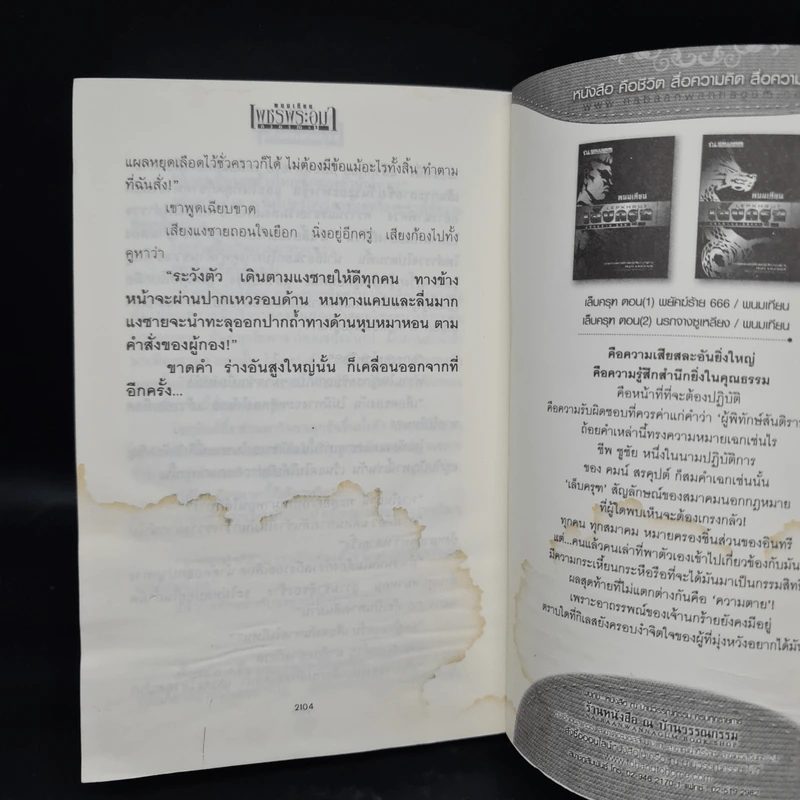 พนมเทียน
เพชรพระอุมา
แผลหยุดเลือดไว้ชั่วคราวก็ได้ ไม่ต้องมีข้อแม้อะไรทั้งสิ้น ทำตาม
ที่ฉันสั่ง!”
เขาพูดเฉียบขาด
เสียงแงซายถอนใจเยือก นิ่งอยู่อีกครู่ เสียงก้องไปทั้ง
คูหาว่า
“ระวังตัว เดินตามแงซายให้ดีทุกคน ทางข้าง
หน้าจะผ่านปากเหวรอบด้าน หนทางแคบและลื่นมาก
แงซายจะนำทะลุออกปากถ้ำทางด้านหุบหมาหอน ตาม
คำสั่งของผู้กอง!”
ขาดคำ ร่างอันสูงใหญ่นั้น ก็เคลื่อนออกจากที่
อีกครั้ง...
2104
หนังสือ คือชีวิต สื่อความคิด สื่อความ
พนมเทียน
เล็บครุฑ
พนมเทียน
เล็บครุฑ
เล็บครุฑ ตอน(1) พยัคฆ์ร้าย 666 / พนมเทียน
เล็บครุฑ ตอน(2) นรกจางซูเหลียง / พนมเทียน
คือความเสียสละอันยิ่งใหญ่
คือความรู้สึกสำนึกยิ่งในคุณธรรม
คือหน้าที่ที่จะต้องปฏิบัติ
คือความรับผิดชอบที่ควรค่าแก่คำว่า ‘ผู้พิทักษ์สันติรา
ถ้อยคำเหล่านี้ทรงความหมายเฉกเช่นไร
ชีพ ชูชัย หนึ่งในนามปฏิบัติการ
ของ คมน์ สรคุปต์ ก็สมคำเฉกเช่นนั้น
‘เล็บครุฑ’ สัญลักษณ์ของสมาคมนอกกฎหมาย
ที่ผู้ใดพบเห็นจะต้องเกรงกลัว!
ทุกคน ทุกสมาคม หมายครองชิ้นส่วนของอินทรี
แต่...คนแล้วคนเล่าที่พาตัวเองเข้าไปเกี่ยวข้องกับมัน
มีความกระเหี้ยนกระหือรือที่จะได้มันมาเป็นกรรมสิทธิ
ผลสุดท้ายที่ไม่แตกต่างกันคือ ‘ความตาย’!
เพราะอาถรรพณ์ของเจ้านกร้ายยังคงมีอยู่
ตราบใดที่กิเลสยังครอบงำจิตใจของผู้ที่มุ่งหวังอยากได้มัน
ร้านหนังสือ ณ บ้านวรรณกรรม